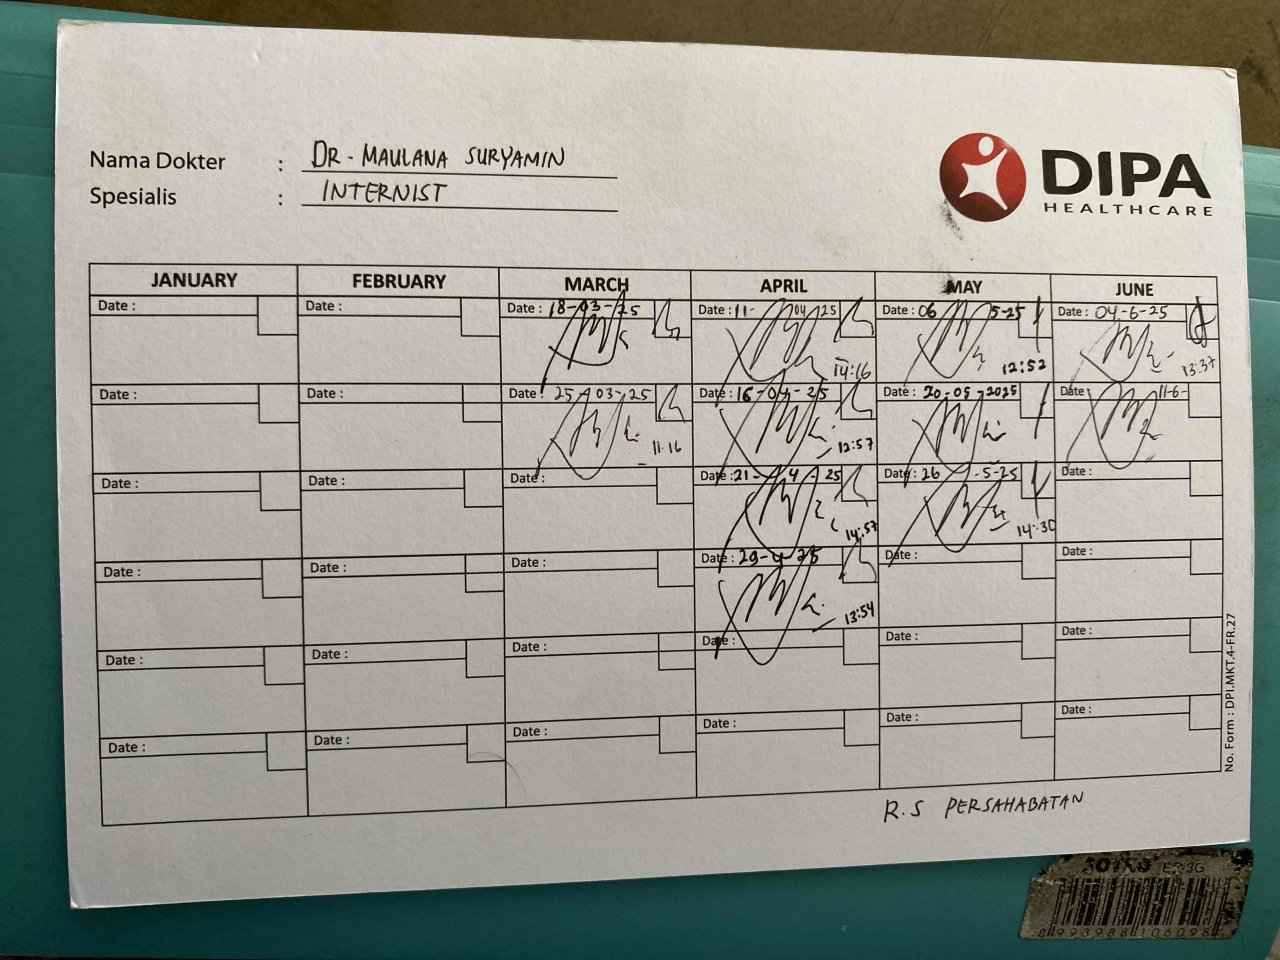 Nama Dokter : DR - MAULANA SURYAMIN
Spesialis : INTERNIST
DIPA
HEALTHCARE
JANUARY FEBRUARY MARCH APRIL MAY JUNE
Date : Date : Date : 18-03-25 Date : 11- 04 25 Date : 06 5-25 Date : 04-6-25
14:16 12:52 13:37
Date : Date : Date : 25-03-25 Date : 16-04-25 Date : 20-05-2025 Date : 11-6-
11.16 12:57
Date : Date : Date : Date : 21- 4 - 25 Date : 26 -5-25 Date :
14:57 14:30
Date : Date : Date : Date : 29-4-25 Date : Date :
13:54
Date : Date : Date : Date : Date : Date :
Date : Date : Date : Date : Date : Date :
No. Form : DPI.MKT.4-FR.27
R.S PERSAHABATAN